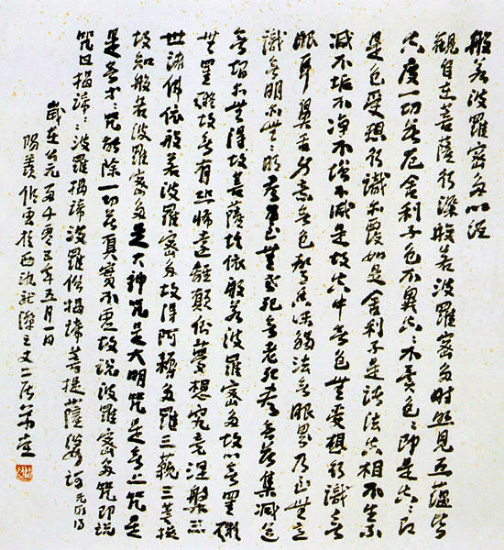 般若波羅蜜多心经
觀自在菩薩行深般若波羅蜜多時照見五蘊皆
空度一切苦厄舍利子色不異空空不異色色即是空空即
是色受想行識亦復如是舍利子是諸法空相不生不
滅不垢不净不增不减是故空中無色無受想行識無
眼耳鼻舌身意無色聲香味觸法無眼界乃至無意
識無明亦無無明盡乃至無老死無老死盡無苦集滅道
無智亦無得故菩薩埵依般若波羅蜜多故心無罣礙
無罣礙故無有恐怖遠離顛倒夢想究竟涅槃三
世諸佛依般若波羅蜜多故得阿耨多羅三藐三菩提
故知般若波羅蜜多是大神咒是大明咒是無上咒是
是無等等咒能除一切苦真實不虚故說波羅蜜多咒即說
咒曰揭諦揭諦波羅揭諦波羅僧揭諦菩提薩婆訶
歲在公元兩千零五年五月一日
陽羨